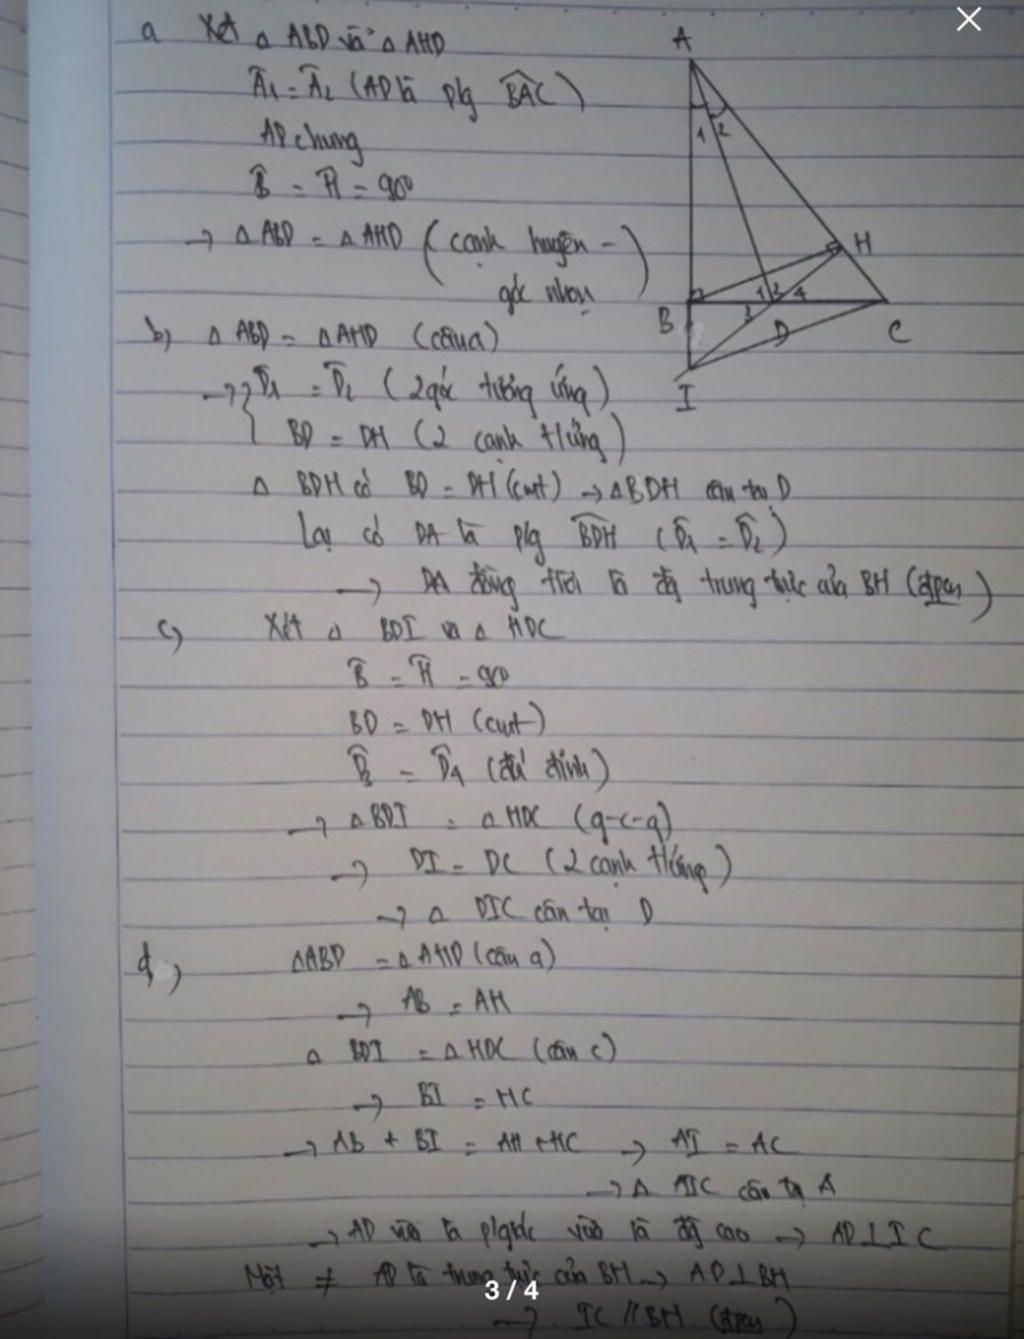 a Xét Δ ABD và Δ AHD
Â1 = Â2 (AD là p/g B̂AC)
AD chung
B̂ = Ĥ = 90°
→ Δ ABD = Δ AHD (cạnh huyền -
góc nhọn)
b) Δ ABD = Δ AHD (câu a)
→ { D̂1 = D̂2 (2 góc tương ứng)
BD = DH (2 cạnh tứng)
Δ BDH có BD = DH (cmt) → Δ BDH cân tại D
Lại có DA là p/g B̂DH (D̂1 = D̂2)
→ DA đồng thời là đg trung trực của BH (đpcm)
c) Xét Δ BDI và Δ HDC
B̂ = Ĥ = 90°
BD = DH (cmt)
D̂3 = D̂4 (đối đỉnh)
→ Δ BDI = Δ HDC (g-c-g)
→ DI = DC (2 cạnh tứng)
→ Δ DIC cân tại D
d, ΔABD = Δ AHD (câu a)
→ AB = AH
Δ BDI = Δ HDC (câu c)
→ BI = HC
→ AB + BI = AH + HC → AI = AC
→ Δ AIC cân tại A
→ AD vừa là p/giác vừa là đg cao → AD ⊥ IC
Mặt ≠ AD là trung trực của BH → AD ⊥ BH
→ IC // BH (đpcm)
A
1 2
H
1 2 4
B 3 D C
I
3 / 4